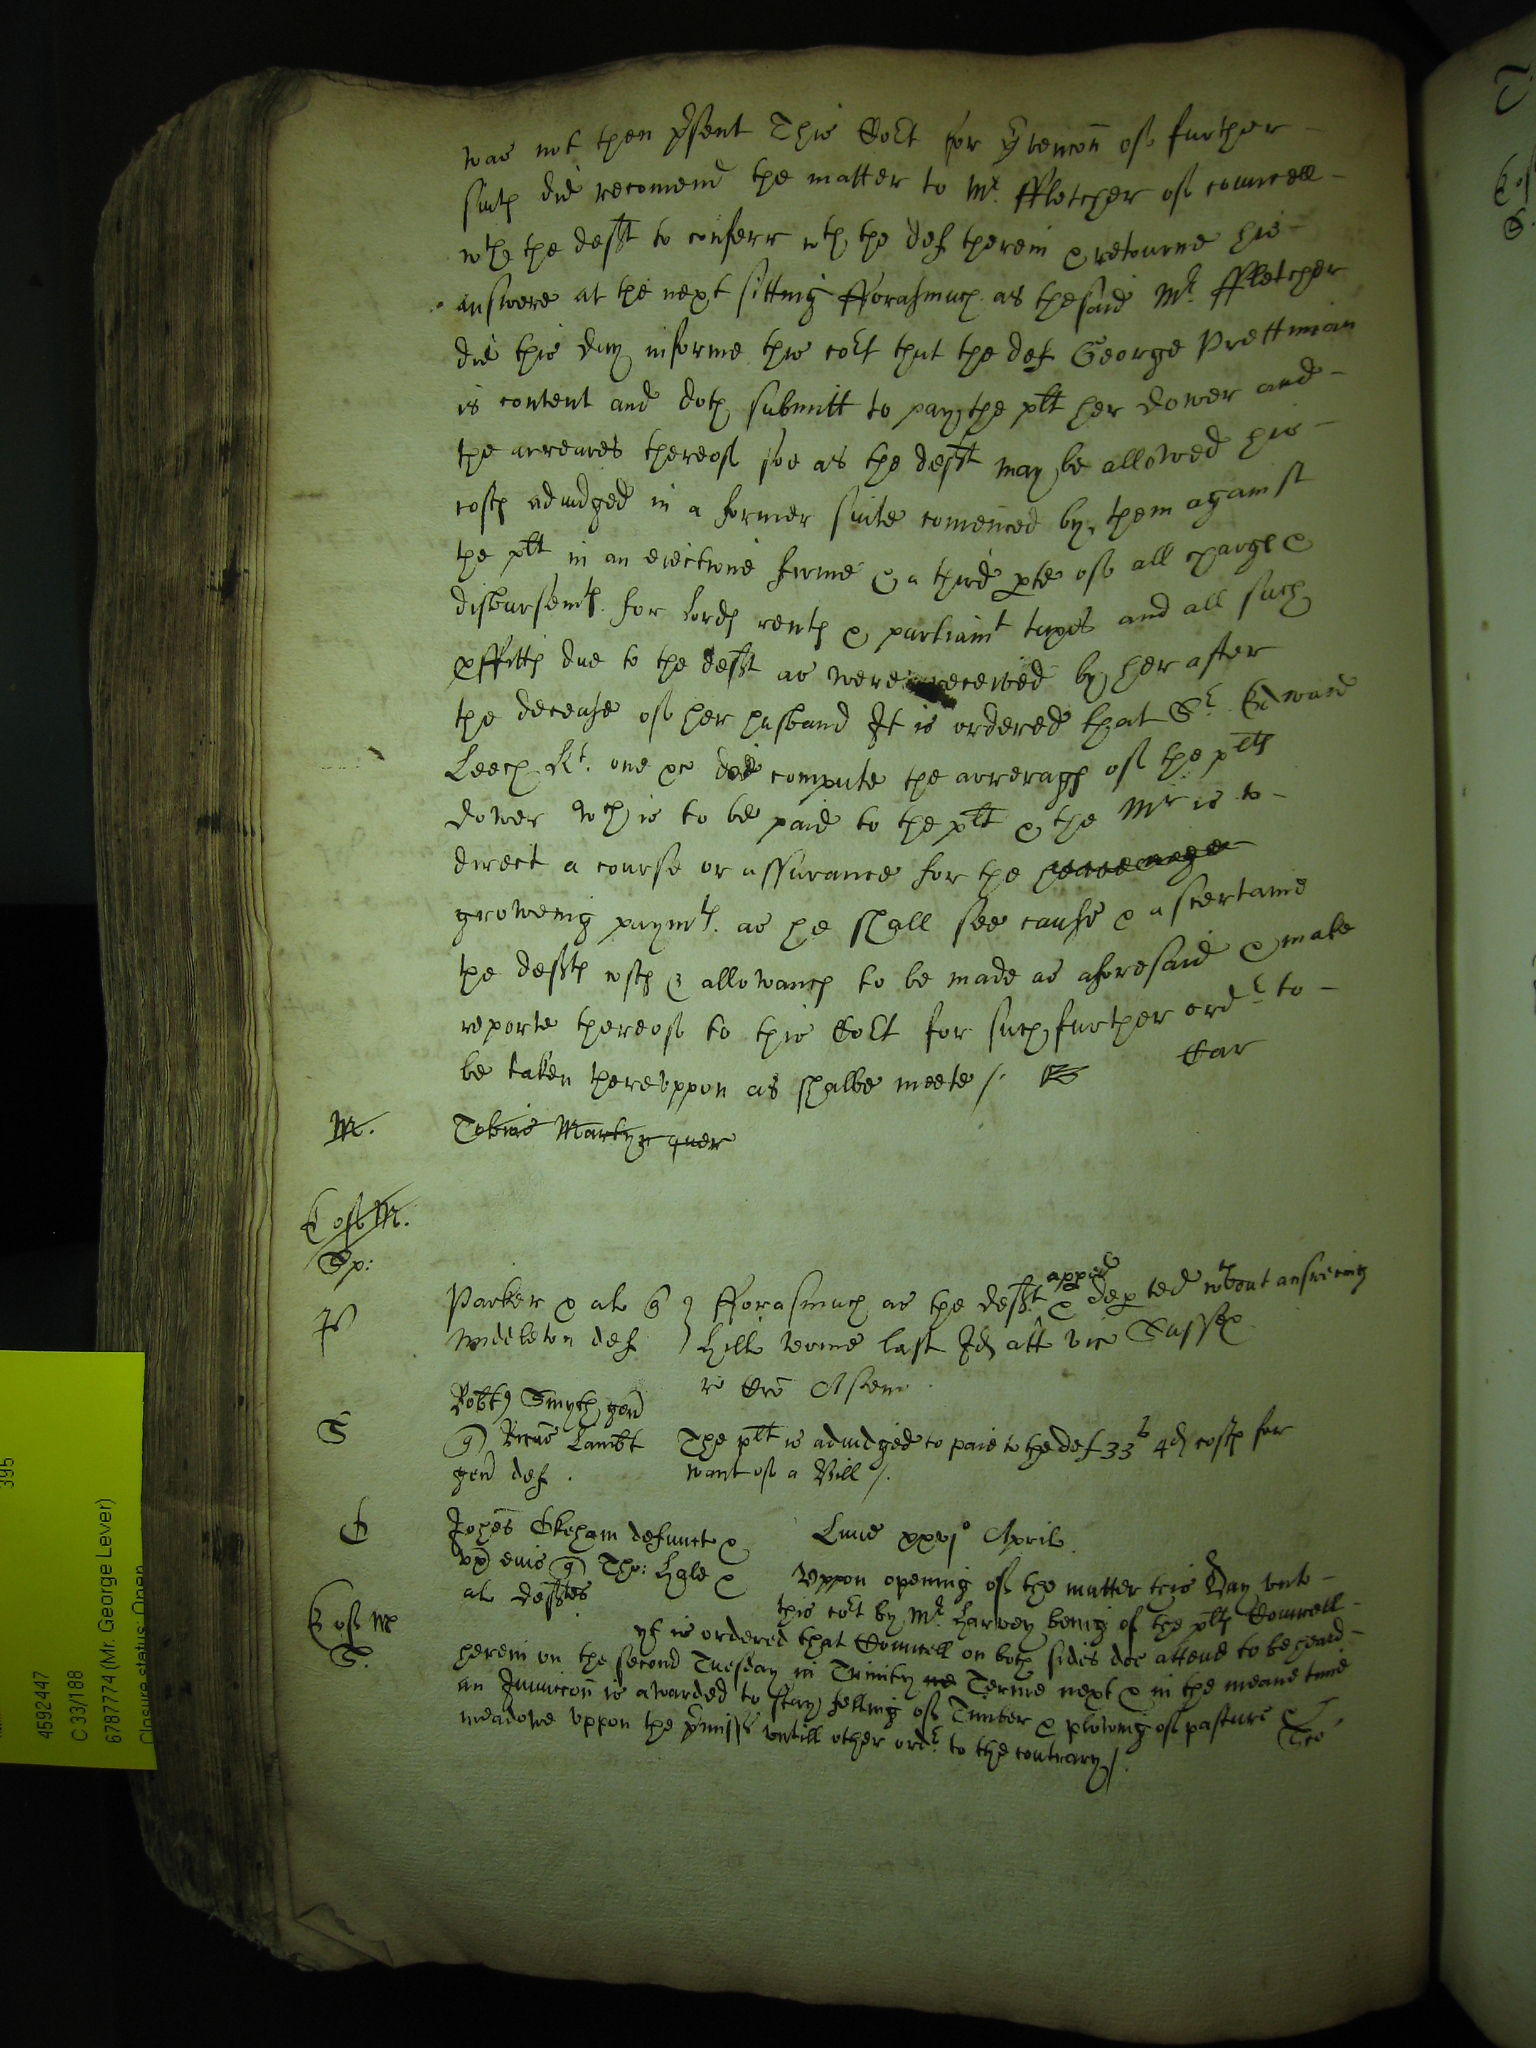 was not then p'sent This Co't for p'vencon of further
suits did recomend the matter to Mr. ffletcher of councell
wth the defts to conferr wth the def therein & retourne his
answere at the next sitting fforasmuch as the said Mr. ffletcher
did this day informe this co't that the def George Prettiman
is content and doth submitt to pay the plt her dower and
the arreares thereof soe as the deft may be allowed his
costs adiudged in a former suite comenced by them against
the plt in an eiectione firme & a third pte of all charges &
disbursemts. for Lords rents & parliamt taxes and all such
pffitts due to the deft as were received by her after
the decease of her husband It is ordered that Sr. Edward
Leech Kt. one &c doe compute the arrerages of the plts
dower wch is to be paid to the plt & the Mr is to
direct a course or assurance for the
groweing paymts. as he shall see cause & ascertaine
the defts costs & allowances to be made as aforesaid & make
reporte thereof to this Co't for such further ordr to
be taken thereuppon as shalbe meete /. Car
M. Tobias Martyn quer
E of M.
Sp:
P Parker & al q fforasmuch as the deft apped & depted wthout answering
Middleton def Hill terme last Id att vic Sussex
re Cro Ascen
Robtus Smyth gen
S q Ricus Lambt The plt is adiudged to paie to the def 33s 4d costs for
gen def. want of a Bill /.
E Johes Okeham defunct & Lune xxvjo April
ux eius q Tho: Hyle & Uppon opening of the matter this day unto
al deftes this co't by Mr Harvey being of the plts Councell
E of M yt is ordered that Councell on both sides doe attend to be heard
S. herein on the second Tuesday in Trinity Terme next & in the meane time
an Iniunccon is awarded to stay felling of Timber & plowing of pasture &
meadowe uppon the p'misss untill other ordr. to the contrary /.
395
4592447
C 33/188
6787774 (Mr. George Lever)
Closure status: Open